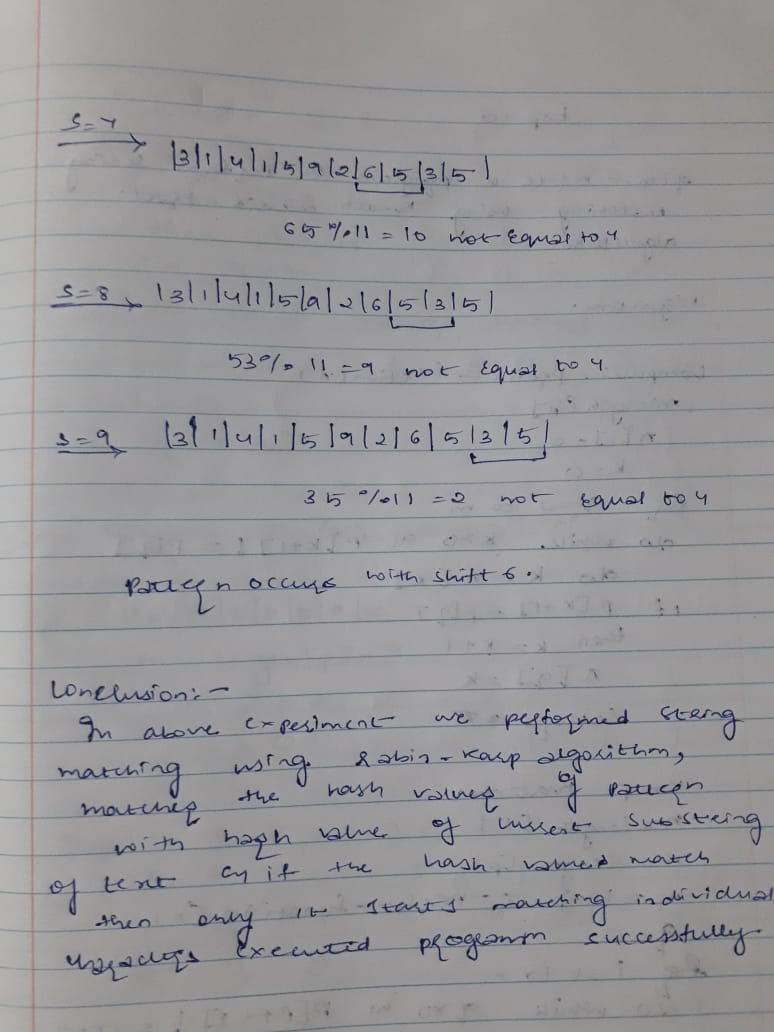 S=7
|3|1|4|1|5|9|2|6|5|3|5|
65 % 11 = 10 not equal to 4
S=8 |3|1|4|1|5|9|2|6|5|3|5|
53 % 11 = 9 not equal to 4
S=9 |3|1|4|1|5|9|2|6|5|3|5|
35 % 11 = 2 not equal to 4
Pattern occurs with shift 6.
Conclusion:-
In above experiment we performed string
matching using Rabin-Karp algorithm,
matches the hash values of pattern
with hash value of current substring
of text if the hash values match
then only it starts matching individual
characters executed programm successfully.